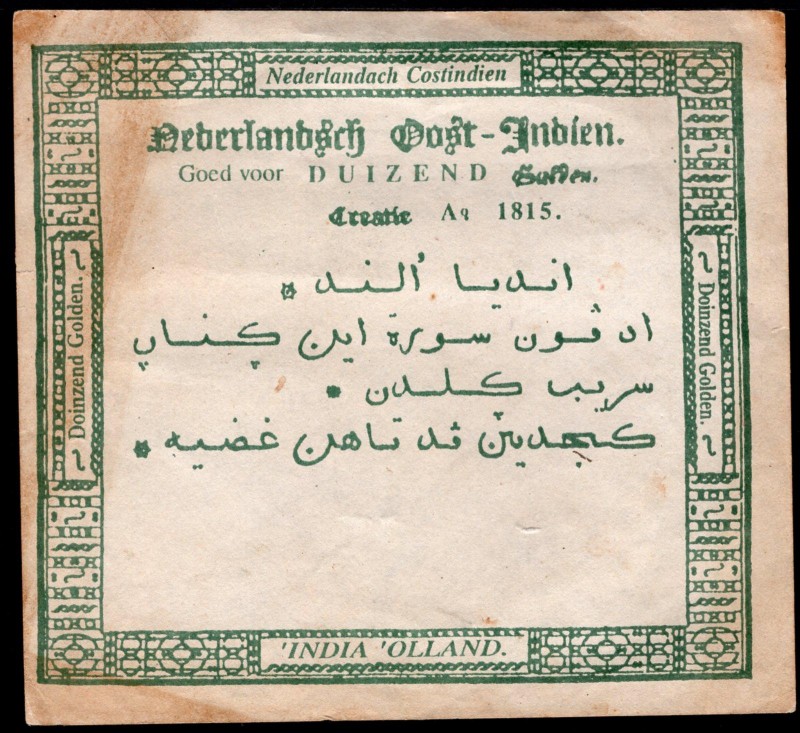 Nederlandach Costindien
Nederlandsch Oost-Indien.
Goed voor DUIZEND Gulden.
Creatie Aº 1815.
انديا ألند
اد ڤون سورة اين
سريب كلدن
كجدين ڤد تاهن
Doinzend Golden.
Doinzend Golden.
'INDIA 'OLLAND.